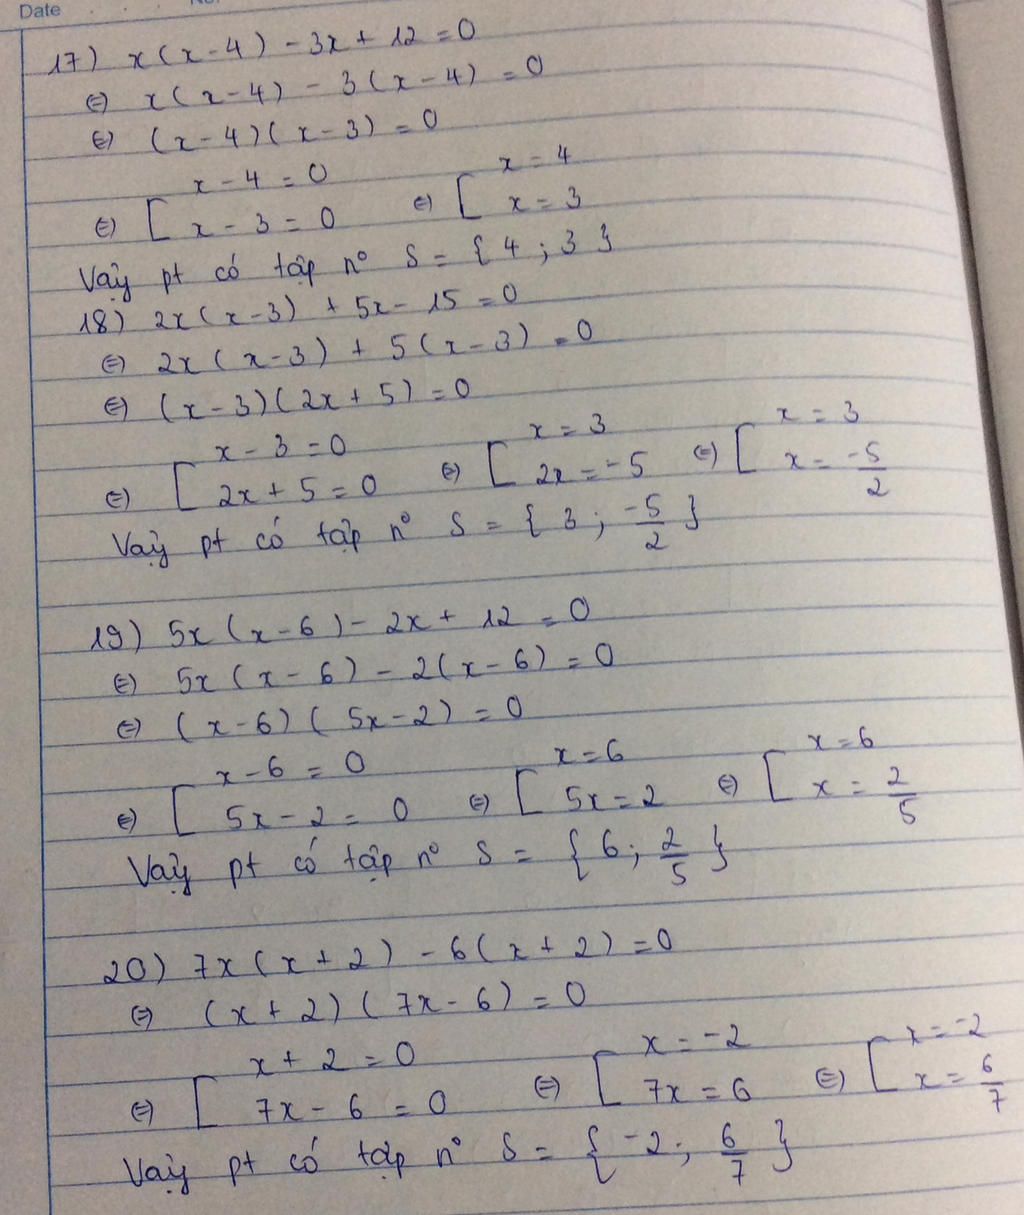 Date
No.
17) x(x-4) - 3x + 12 = 0
⇔ x(x-4) - 3(x-4) = 0
⇔ (x-4)(x-3) = 0
⇔ [ x-4 = 0 ; x-3 = 0 ⇔ [ x = 4 ; x = 3
Vậy pt có tập nº S = { 4 ; 3 }
18) 2x(x-3) + 5x - 15 = 0
⇔ 2x(x-3) + 5(x-3) = 0
⇔ (x-3)(2x+5) = 0
⇔ [ x-3 = 0 ; 2x+5 = 0 ⇔ [ x = 3 ; 2x = -5 ⇔ [ x = 3 ; x = -5/2
Vậy pt có tập nº S = { 3 ; -5/2 }
19) 5x(x-6) - 2x + 12 = 0
⇔ 5x(x-6) - 2(x-6) = 0
⇔ (x-6)(5x-2) = 0
⇔ [ x-6 = 0 ; 5x-2 = 0 ⇔ [ x = 6 ; 5x = 2 ⇔ [ x = 6 ; x = 2/5
Vậy pt có tập nº S = { 6 ; 2/5 }
20) 7x(x+2) - 6(x+2) = 0
⇔ (x+2)(7x-6) = 0
⇔ [ x+2 = 0 ; 7x-6 = 0 ⇔ [ x = -2 ; 7x = 6 ⇔ [ x = -2 ; x = 6/7
Vậy pt có tập nº S = { -2 ; 6/7 }